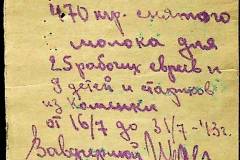 470 лтр. снятого
молока для
25 рабочих евреев и
9 детей и стариков
из Каменки
от 16/7 до 31/7-43г.
Завфермой